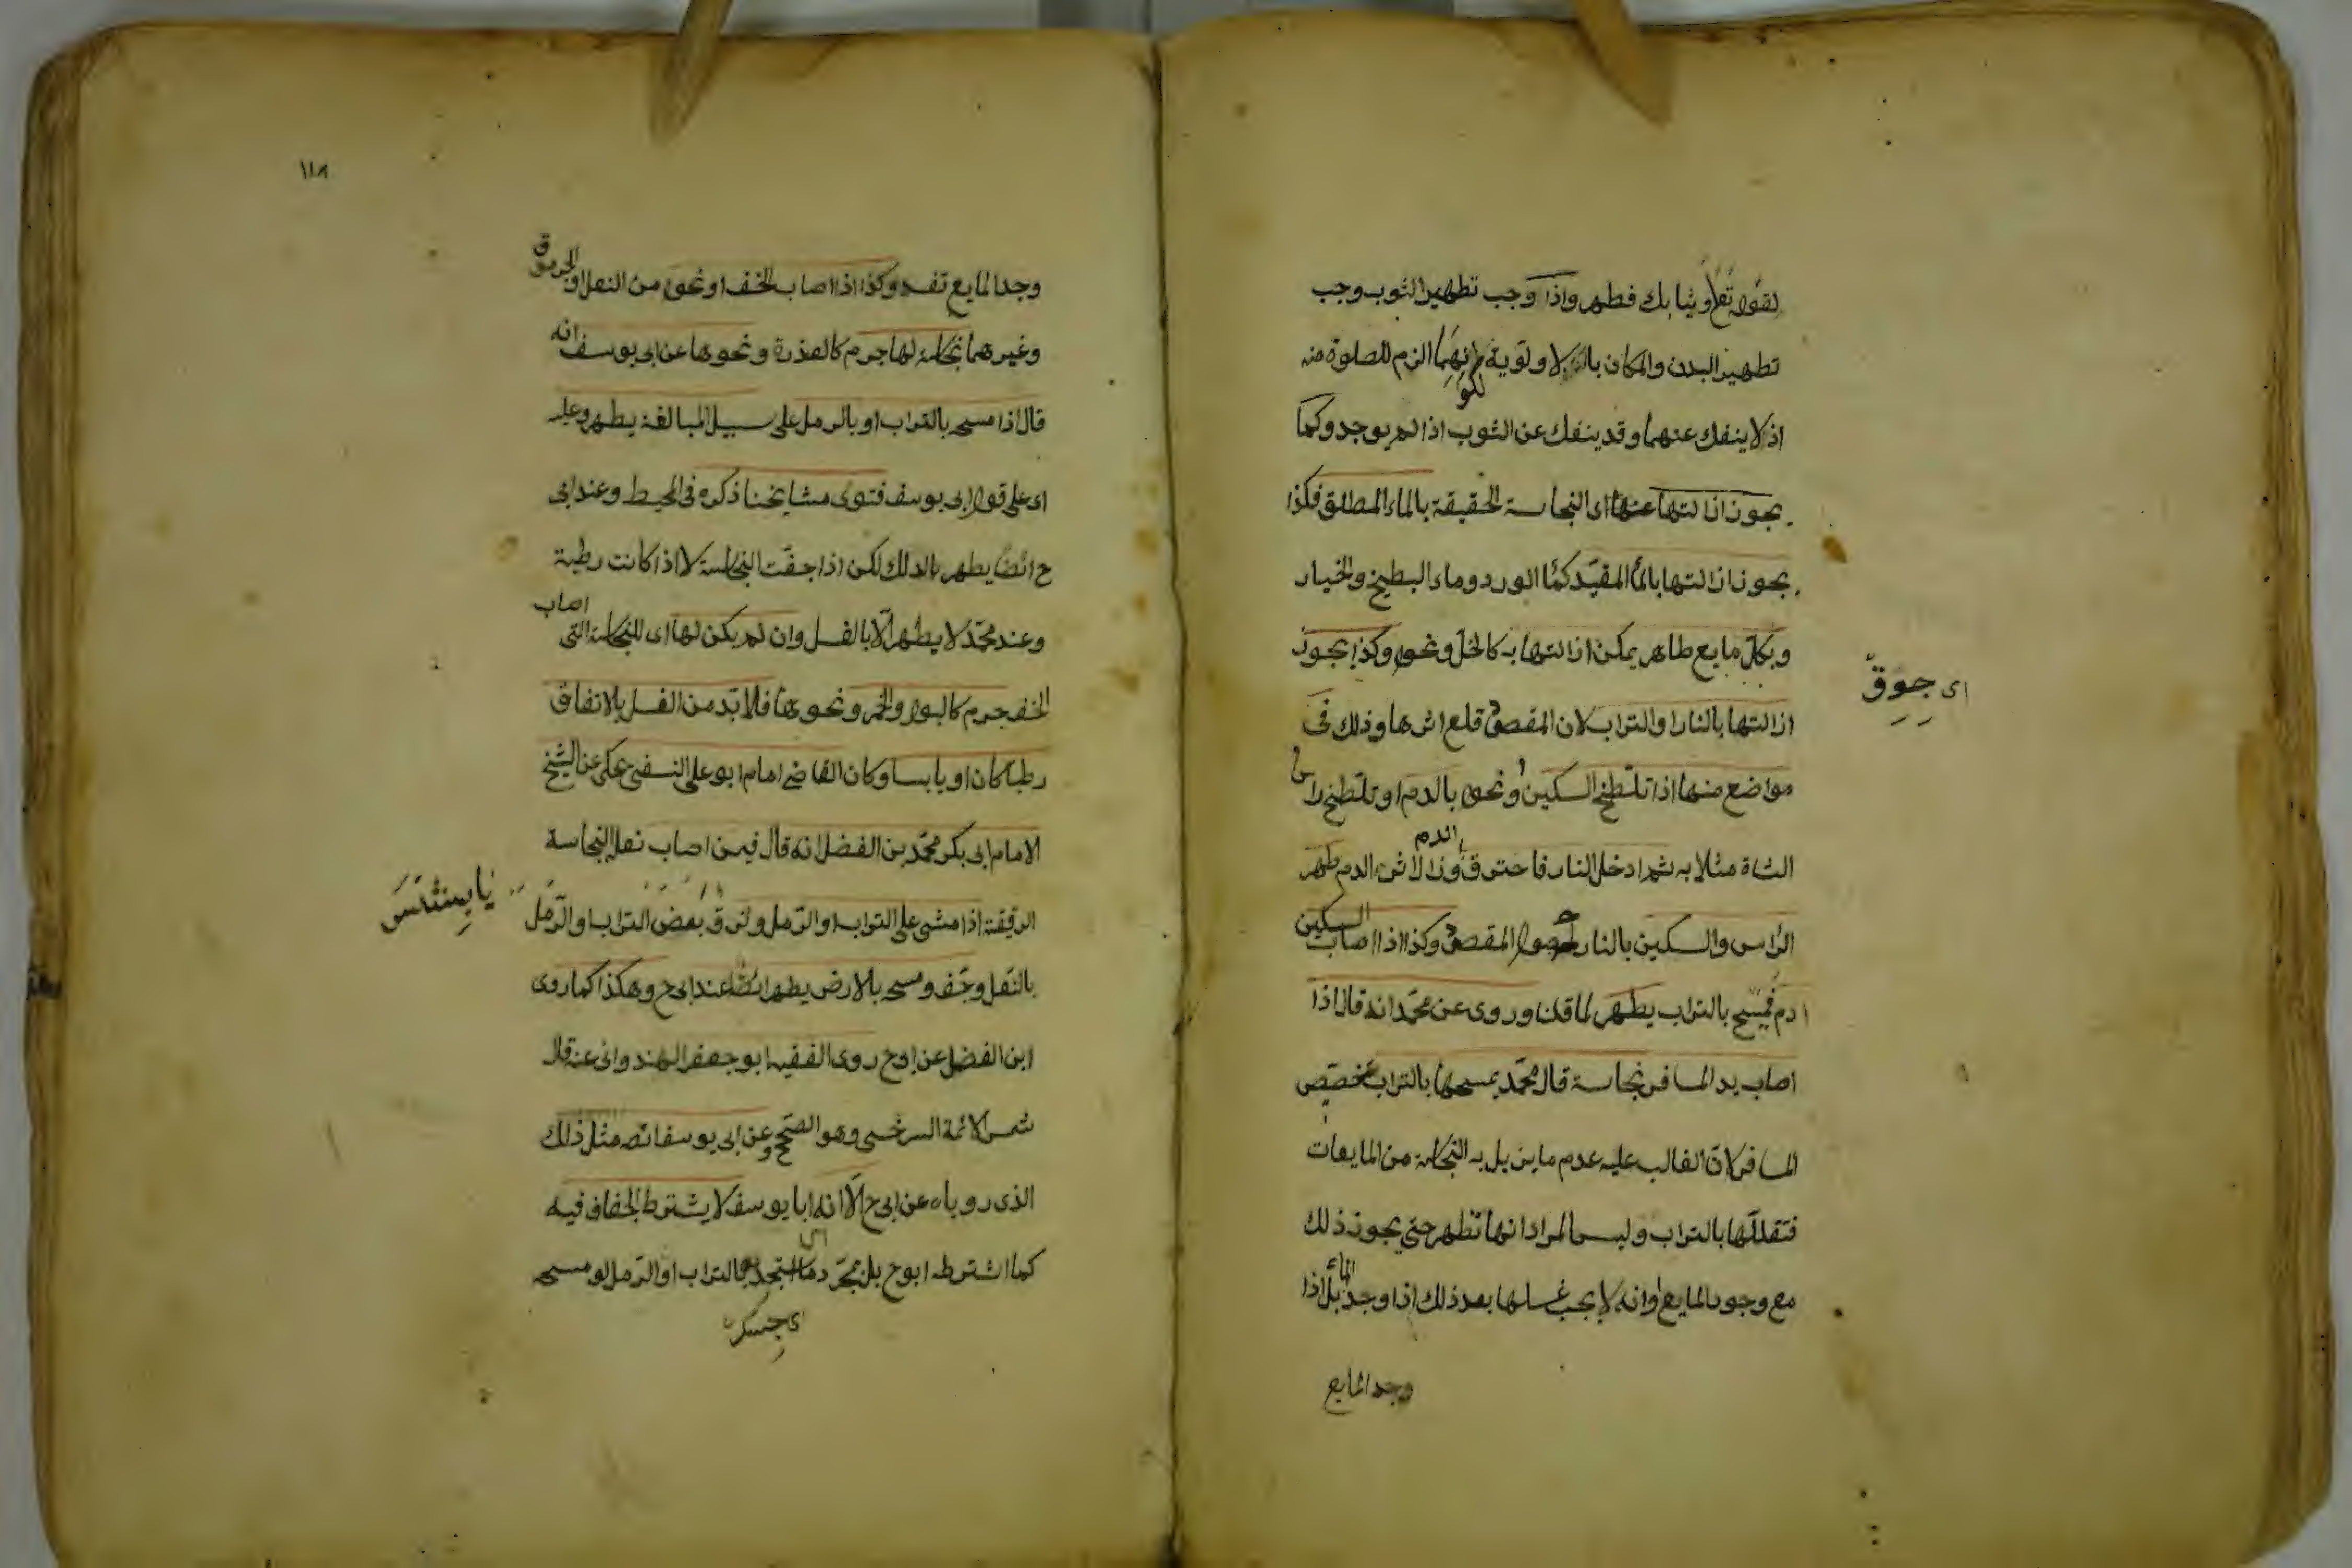 لقوله تع وثيابك فطهر واذا وجب تطهير الثوب وجب
تطهير البدن والمكان بالاولوية لكونهما الزم للصلوة منه
اذ لا ينفك عنهما وقد ينفك عن الثوب اذا لم يوجد وكما
يجوز ازالتها عنها اى النجاسة الحقيقة بالماء المطلق فكذا
يجوز ازالتها بالماء المقيد كماء الورد وماء البطيخ والخيار
وبكل مايع طاهر يمكن ازالتها به كالخل ونحوه وكذا يجوز
اى جوق
ازالتها بالنار او التراب لان المقصود قلع اثرها وذلك فى
مواضع منها اذا تلطخ السكين ونحوه بالدم او تلطخ راس
الشاة مثلا به ثم ادخل النار فاحترق الدم وزال اثر الدم طهر
الراس والسكين بالنار لحصول المقصود وكذا اذا اصاب السكين
دم فمسح بالتراب يطهر لما قلنا وروى عن محمد انه قال اذا
اصاب يد المسافر نجاسة قال محمد يمسحها بالتراب تخصيص
المسافر لان الغالب عليه عدم ما يزيل به النجاسة من المايعات
فتقللها بالتراب وليس المراد انها تطهر حتى يجوز ذلك
مع وجود المايع او انه لا يجب غسلها بعد ذلك اذا وجد الماء بل اذا
وجد المايع
١١٨
وجد المايع تفسد وكذا اذا اصاب الخف او نحوه من النعل او الجرموق
وغيرهما نجاسة لها جرم كالعذرة ونحوها عن ابى يوسف انه
قال اذا مسحه بالتراب او بالرمل على سبيل المبالغة يطهر وعليه
اى على قول ابى يوسف فتوى مشايخنا ذكره فى المحيط وعند ابى
ح ايضا يطهر بالدلك لكن اذا جفت النجاسة لا اذا كانت رطبة
وعند محمد لا يطهر الا بالغسل وان لم يكن لها اى للنجاسة التى اصاب
الخف جرم كالبول والخمر ونحوها فلا بد من الغسل بالاتفاق
رطبا كان او يابسا وكان القاضى امام ابو على النسفى يحكى عن الشيخ
الامام ابى بكر محمد بن الفضل انه قال فيمن اصاب نعله النجاسة
الرقيقة اذا مشى على التراب او الرمل ولزق بعض التراب او الرمل
بالنعل وجف ومسحه بالارض يطهر ايضا عند ابى ح وهكذا كما روى
ابن الفضل عن ابى ح روى الفقيه ابو جعفر الهندوانى عنه قال
شمس الائمة السرخسى وهو الصحيح وعن ابى يوسف انه مثل ذلك
الذى روياه عن ابى ح الا انه ابا يوسف لا يشترط الجفاف فيه
كما اشترطه ابو ح بل بمجرد ما استجد بالتراب او الرمل لو مسحه